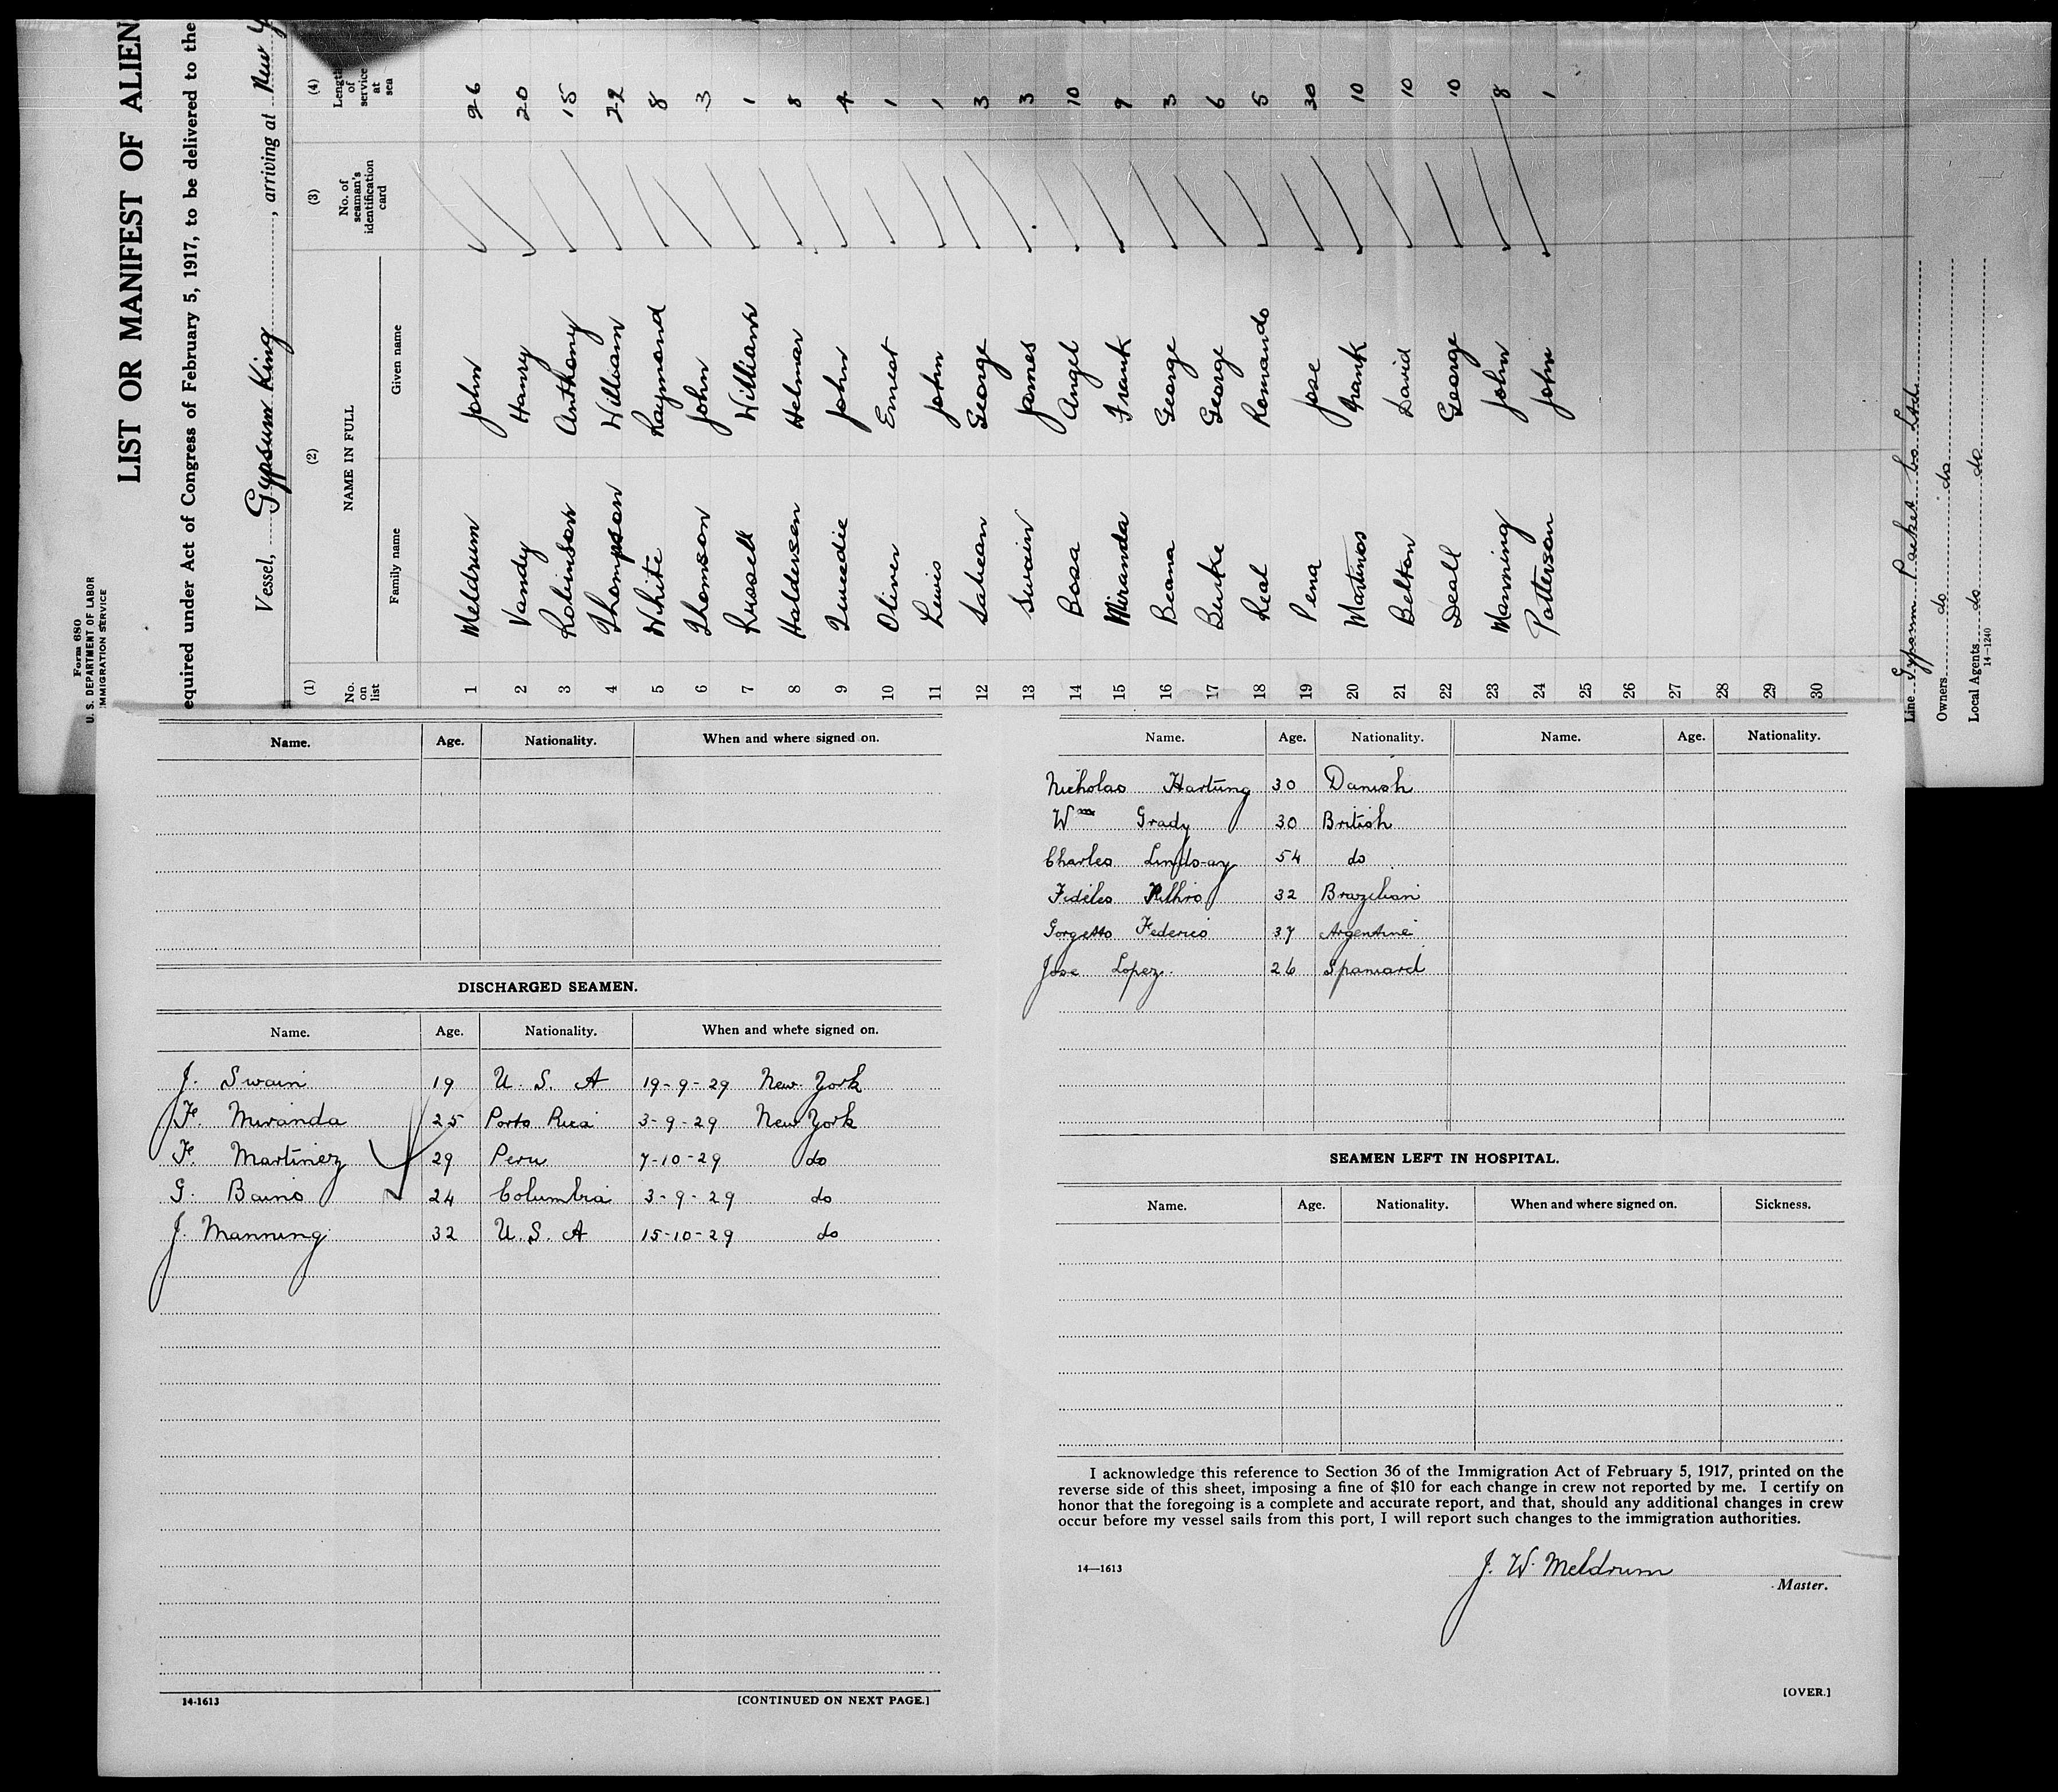 Form 680
U. S. DEPARTMENT OF LABOR
IMMIGRATION SERVICE
LIST OR MANIFEST OF ALIEN
equired under Act of Congress of February 5, 1917, to be delivered to the
Vessel, Gypsum King, arriving at New Y
(1) (2) (3) (4)
No. on list NAME IN FULL No. of seaman's identification card Length of service at sea
Family name Given name
1 Meldrum John 26
2 Vandy Hanry 20
3 Robinson Anthony 15
4 Thompson William 22
5 White Raymond 8
6 Thomson John 3
7 Russell William 1
8 Haldersen Helmar 8
9 Tweedie John 4
10 Oliver Ernest 1
11 Lewis John 1
12 Sabean George 3
13 Swain James 3
14 Bosa Angel 10
15 Miranda Frank 9
16 Beana George 3
17 Burke George 6
18 Real Romando 5
19 Pena Jose 30
20 Martinos Frank 10
21 Belton David 10
22 Deall George 10
23 Manning John 8
24 Patterson John 1
25
26
27
28
29
30
Line Gypsum Packet Co. Ltd.
Owners do do
Local Agents do do
14-1240
Name. Age. Nationality. When and where signed on.
DISCHARGED SEAMEN.
Name. Age. Nationality. When and where signed on.
J. Swain 19 U. S. A 19-9-29 New York
F. Miranda 25 Porto Rica 3-9-29 New York
F. Martinez 29 Peru 7-10-29 do
G. Bains 24 Columbia 3-9-29 do
J. Manning 32 U. S. A 15-10-29 do
14-1613
[CONTINUED ON NEXT PAGE.]
Name. Age. Nationality. Name. Age. Nationality.
Nicholas Hartung 30 Danish
Wm Grady 30 British
Charles Lindsay 54 do
Fideles 32 Brazilian
Gorgetto Federico 37 Argentine
Jose Lopez. 26 Spaniard
SEAMEN LEFT IN HOSPITAL.
Name. Age. Nationality. When and where signed on. Sickness.
I acknowledge this reference to Section 36 of the Immigration Act of February 5, 1917, printed on the
reverse side of this sheet, imposing a fine of $10 for each change in crew not reported by me. I certify on
honor that the foregoing is a complete and accurate report, and that, should any additional changes in crew
occur before my vessel sails from this port, I will report such changes to the immigration authorities.
14—1613
J. W. Meldrum
Master.
[OVER.]